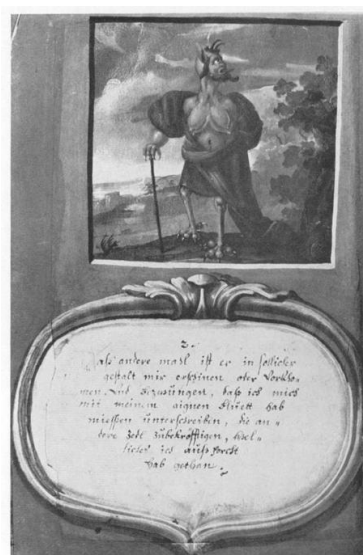 2.
als andere mall ist er in sollicher
gestalt mir erschinen oder Vorkho=
men und bezwungen, daß ich mich
mit meinem aignen bluett hab
miessen unterschreiben, die an=
dere Zedl zubekräfftigen, wel=
liches ich auß forcht
hab gethan.